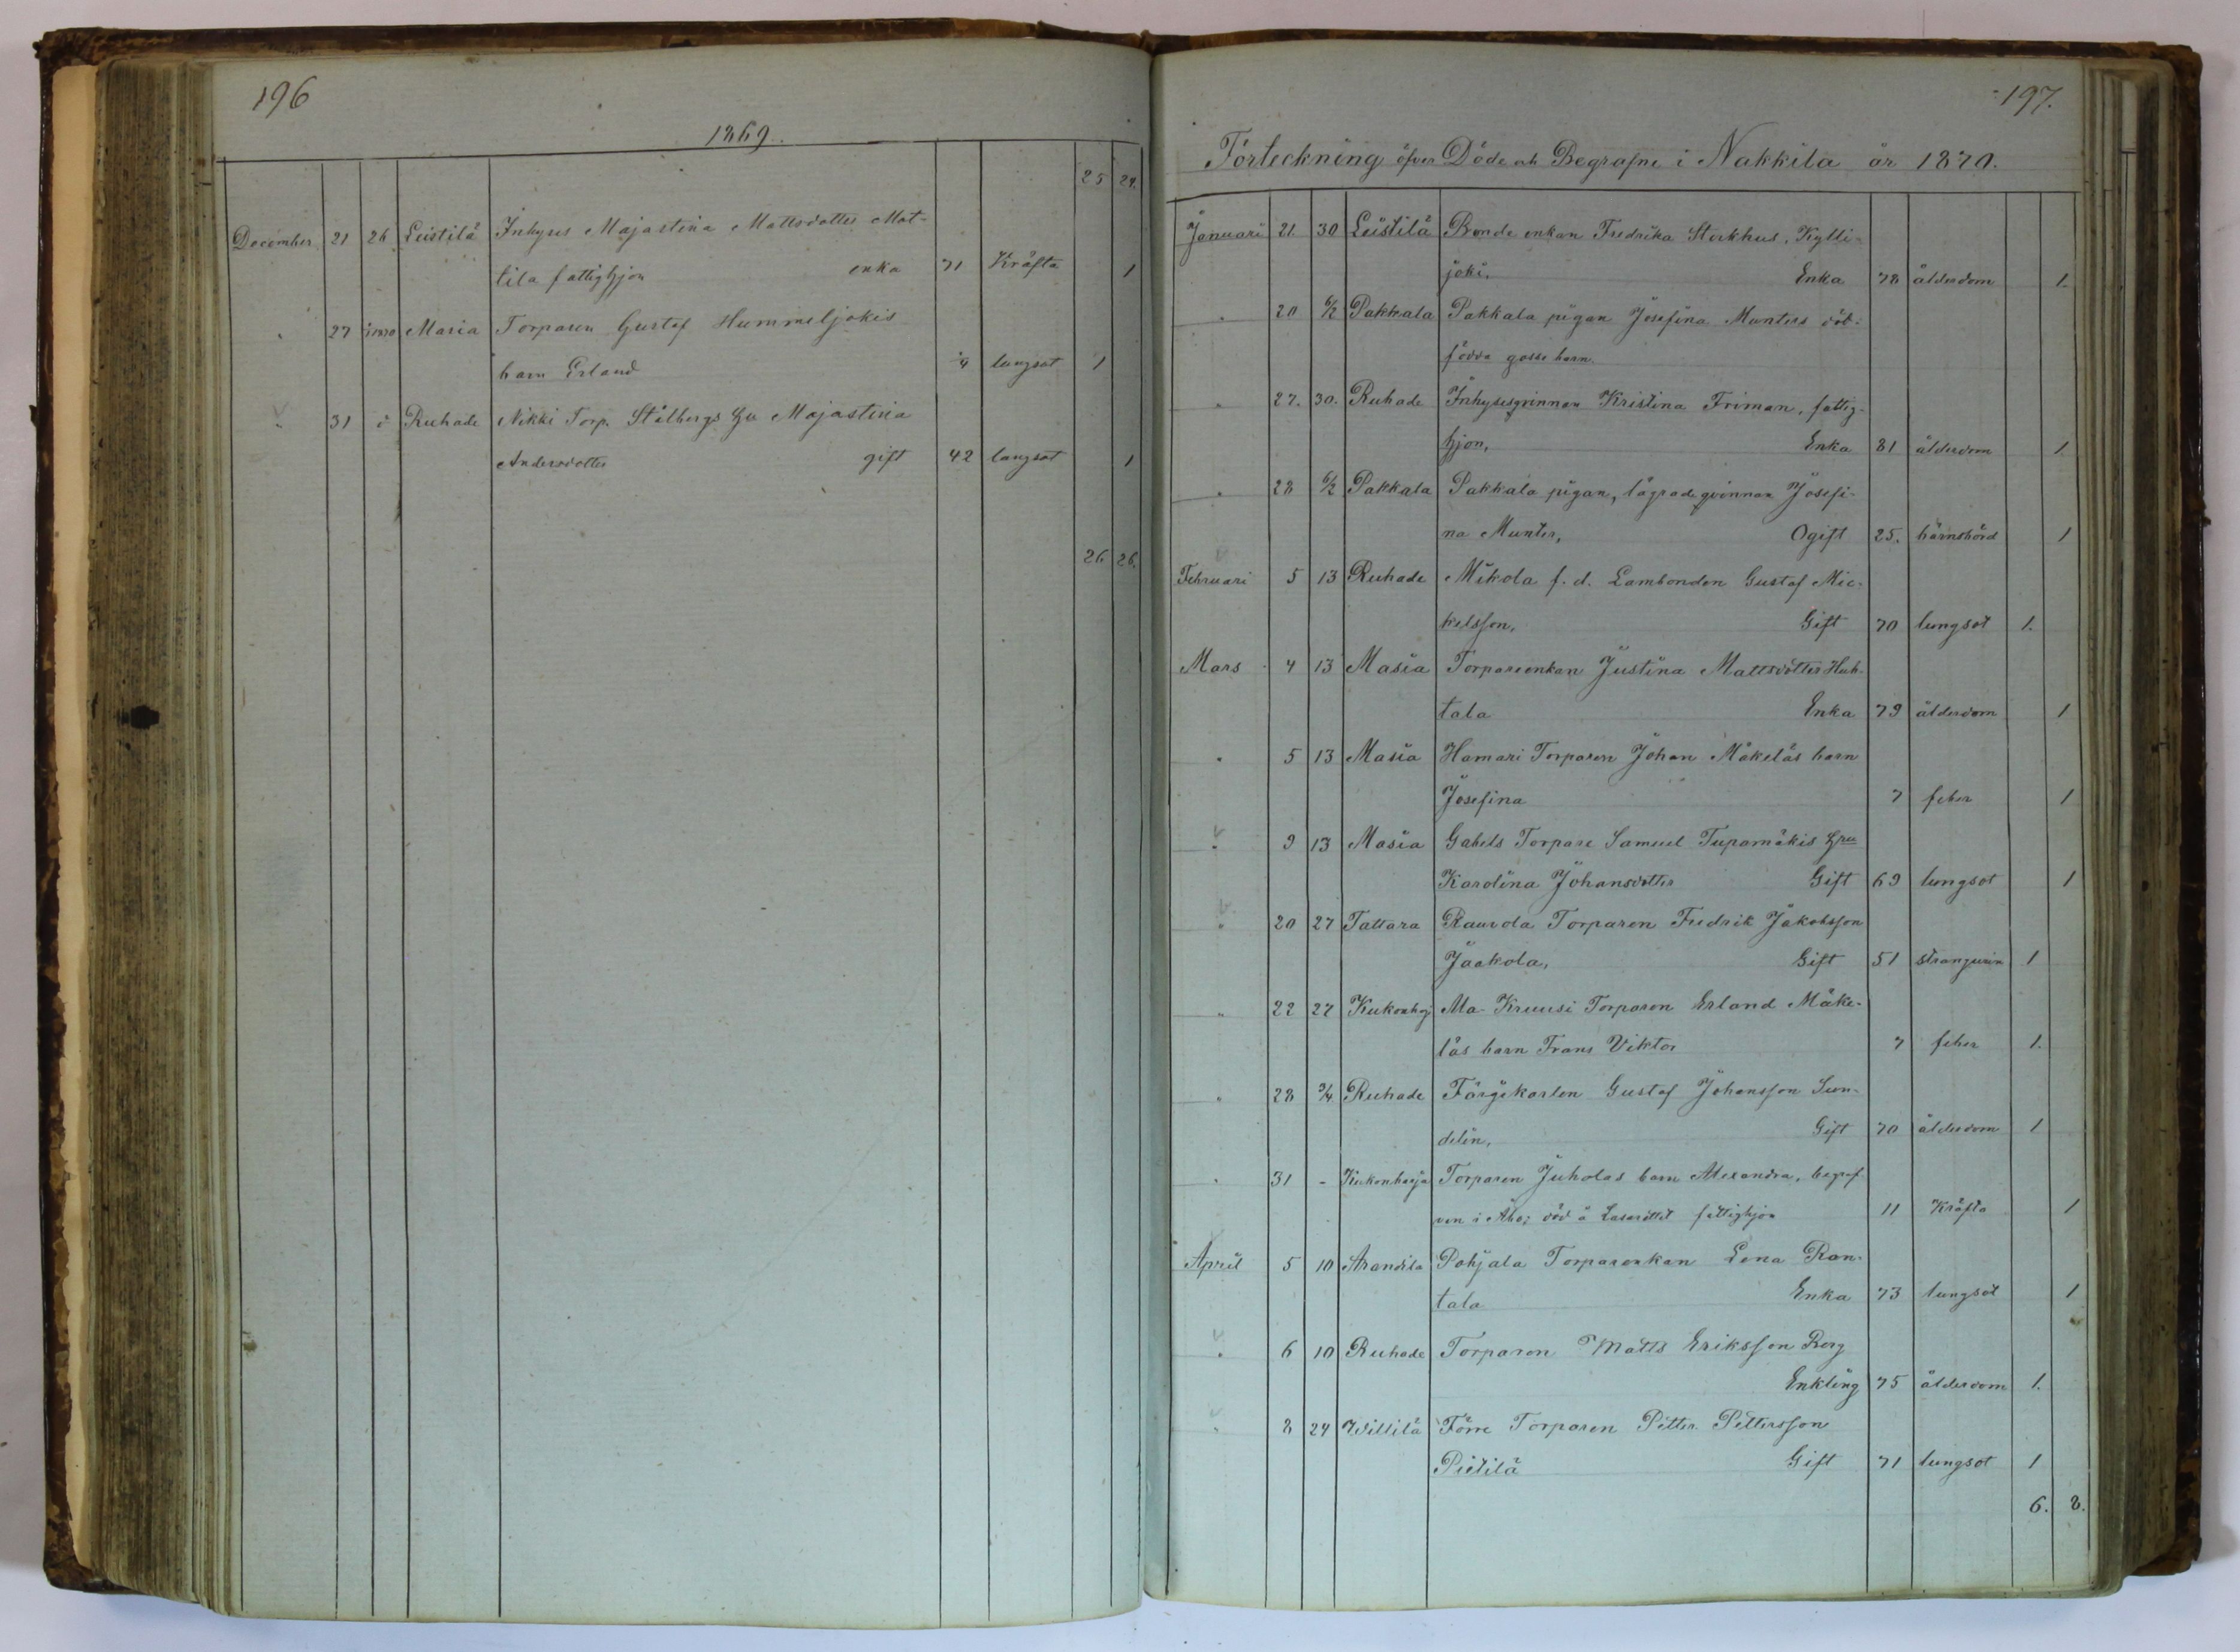 196
1869.
25 24.
December 21 26 Leistilä Inhyses Majastina Mattsdotter Mat-
tila fattighjon enka 71 Kräfta 1
" 27 Masia Torparen Gustaf Hummeljokis
barn Erland lungsot 1
" 31 Ruhade Nikki Torp. Stålbergs hu Majastina
Andersdotter gift 42 lungsot 1
26 26.
197.
Förteckning öfver Döde och Begrafne i Nakkila år 1870.
Januari 21. 30 Leistilä Bonde enkan Fredrika Storkhus, Kylli-
joki, Enka 78 ålderdom 1.
" 20 6/2 Pakkala Pakkala pigan Josefina Munters död-
födda gosse barn.
" 27. 30. Ruhade Inhysesqvinnan Kristina Friman, fattig-
hjon, Enka 81 ålderdom 1
" 28 6/2 Pakkala Pakkala pigan, lägrade qvinnan Josefi-
na Munter, Ogift 25. barnsbörd 1
Februari 5 13 Ruhade Mikola f. d. Lambonden Gustaf Mic-
kelsson, Gift 70 lungsot 1.
Mars 4 13 Masia Torpareenkan Justina Mattsdotter Huh-
tala Enka 79 ålderdom 1
" 5 13 Masia Hamari Torparen Johan Mäkeläs barn
Josefina 7 feber 1
" 9 13 Masia Gabels Torpare Samuel Tupamäkis hu
Karolina Johansdotter Gift 69 lungsot 1
" 20 27 Tattara Raurola Torparen Fredrik Jakobsson
Jaakola, Gift 51 strangurin 1
" 22 27 Kukonhj Ma-Kruusi Torparen Erland Mäke-
läs barn Frans Viktor 7 feber 1.
" 28 3/4 Ruhade Färgikarlen Gustaf Johansson Sun-
delin, Gift 70 ålderdom 1
" 31 - Kukonharja Torparen Juholas barn Alexandra, begraf-
ven i Åbo; död å Lasarettet fattighjon 11 Kräfta 1
April 5 10 Arandila Pohjala Torparenkan Lena Ran-
tala Enka 73 lungsot 1
" 6 10 Ruhade Torparen Matts Eriksson Berg
Enkling 75 ålderdom 1.
" 8 24 Willilä Förre Torparen Petter Pettersson
Pietilä Gift 71 lungsot 1
6. 8.